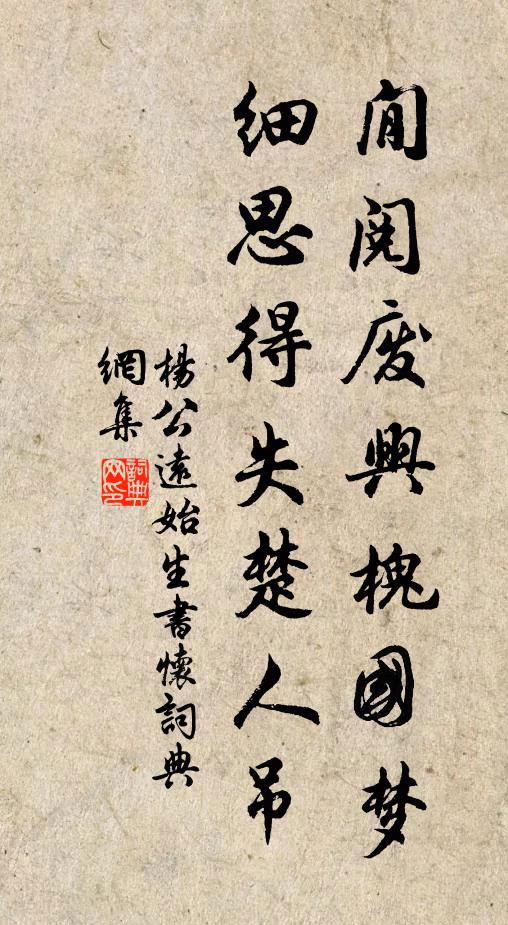 閒閱废興槐國梦
细思得失楚人吊
楊公遠始生書懷詞典
網集
詞典網印